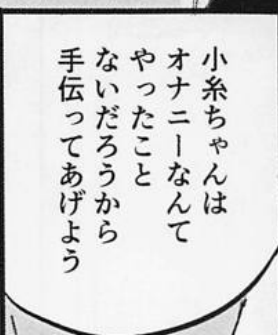 小糸ちゃんは
オナニーなんて
やったこと
ないだろうから
手伝ってあげよう